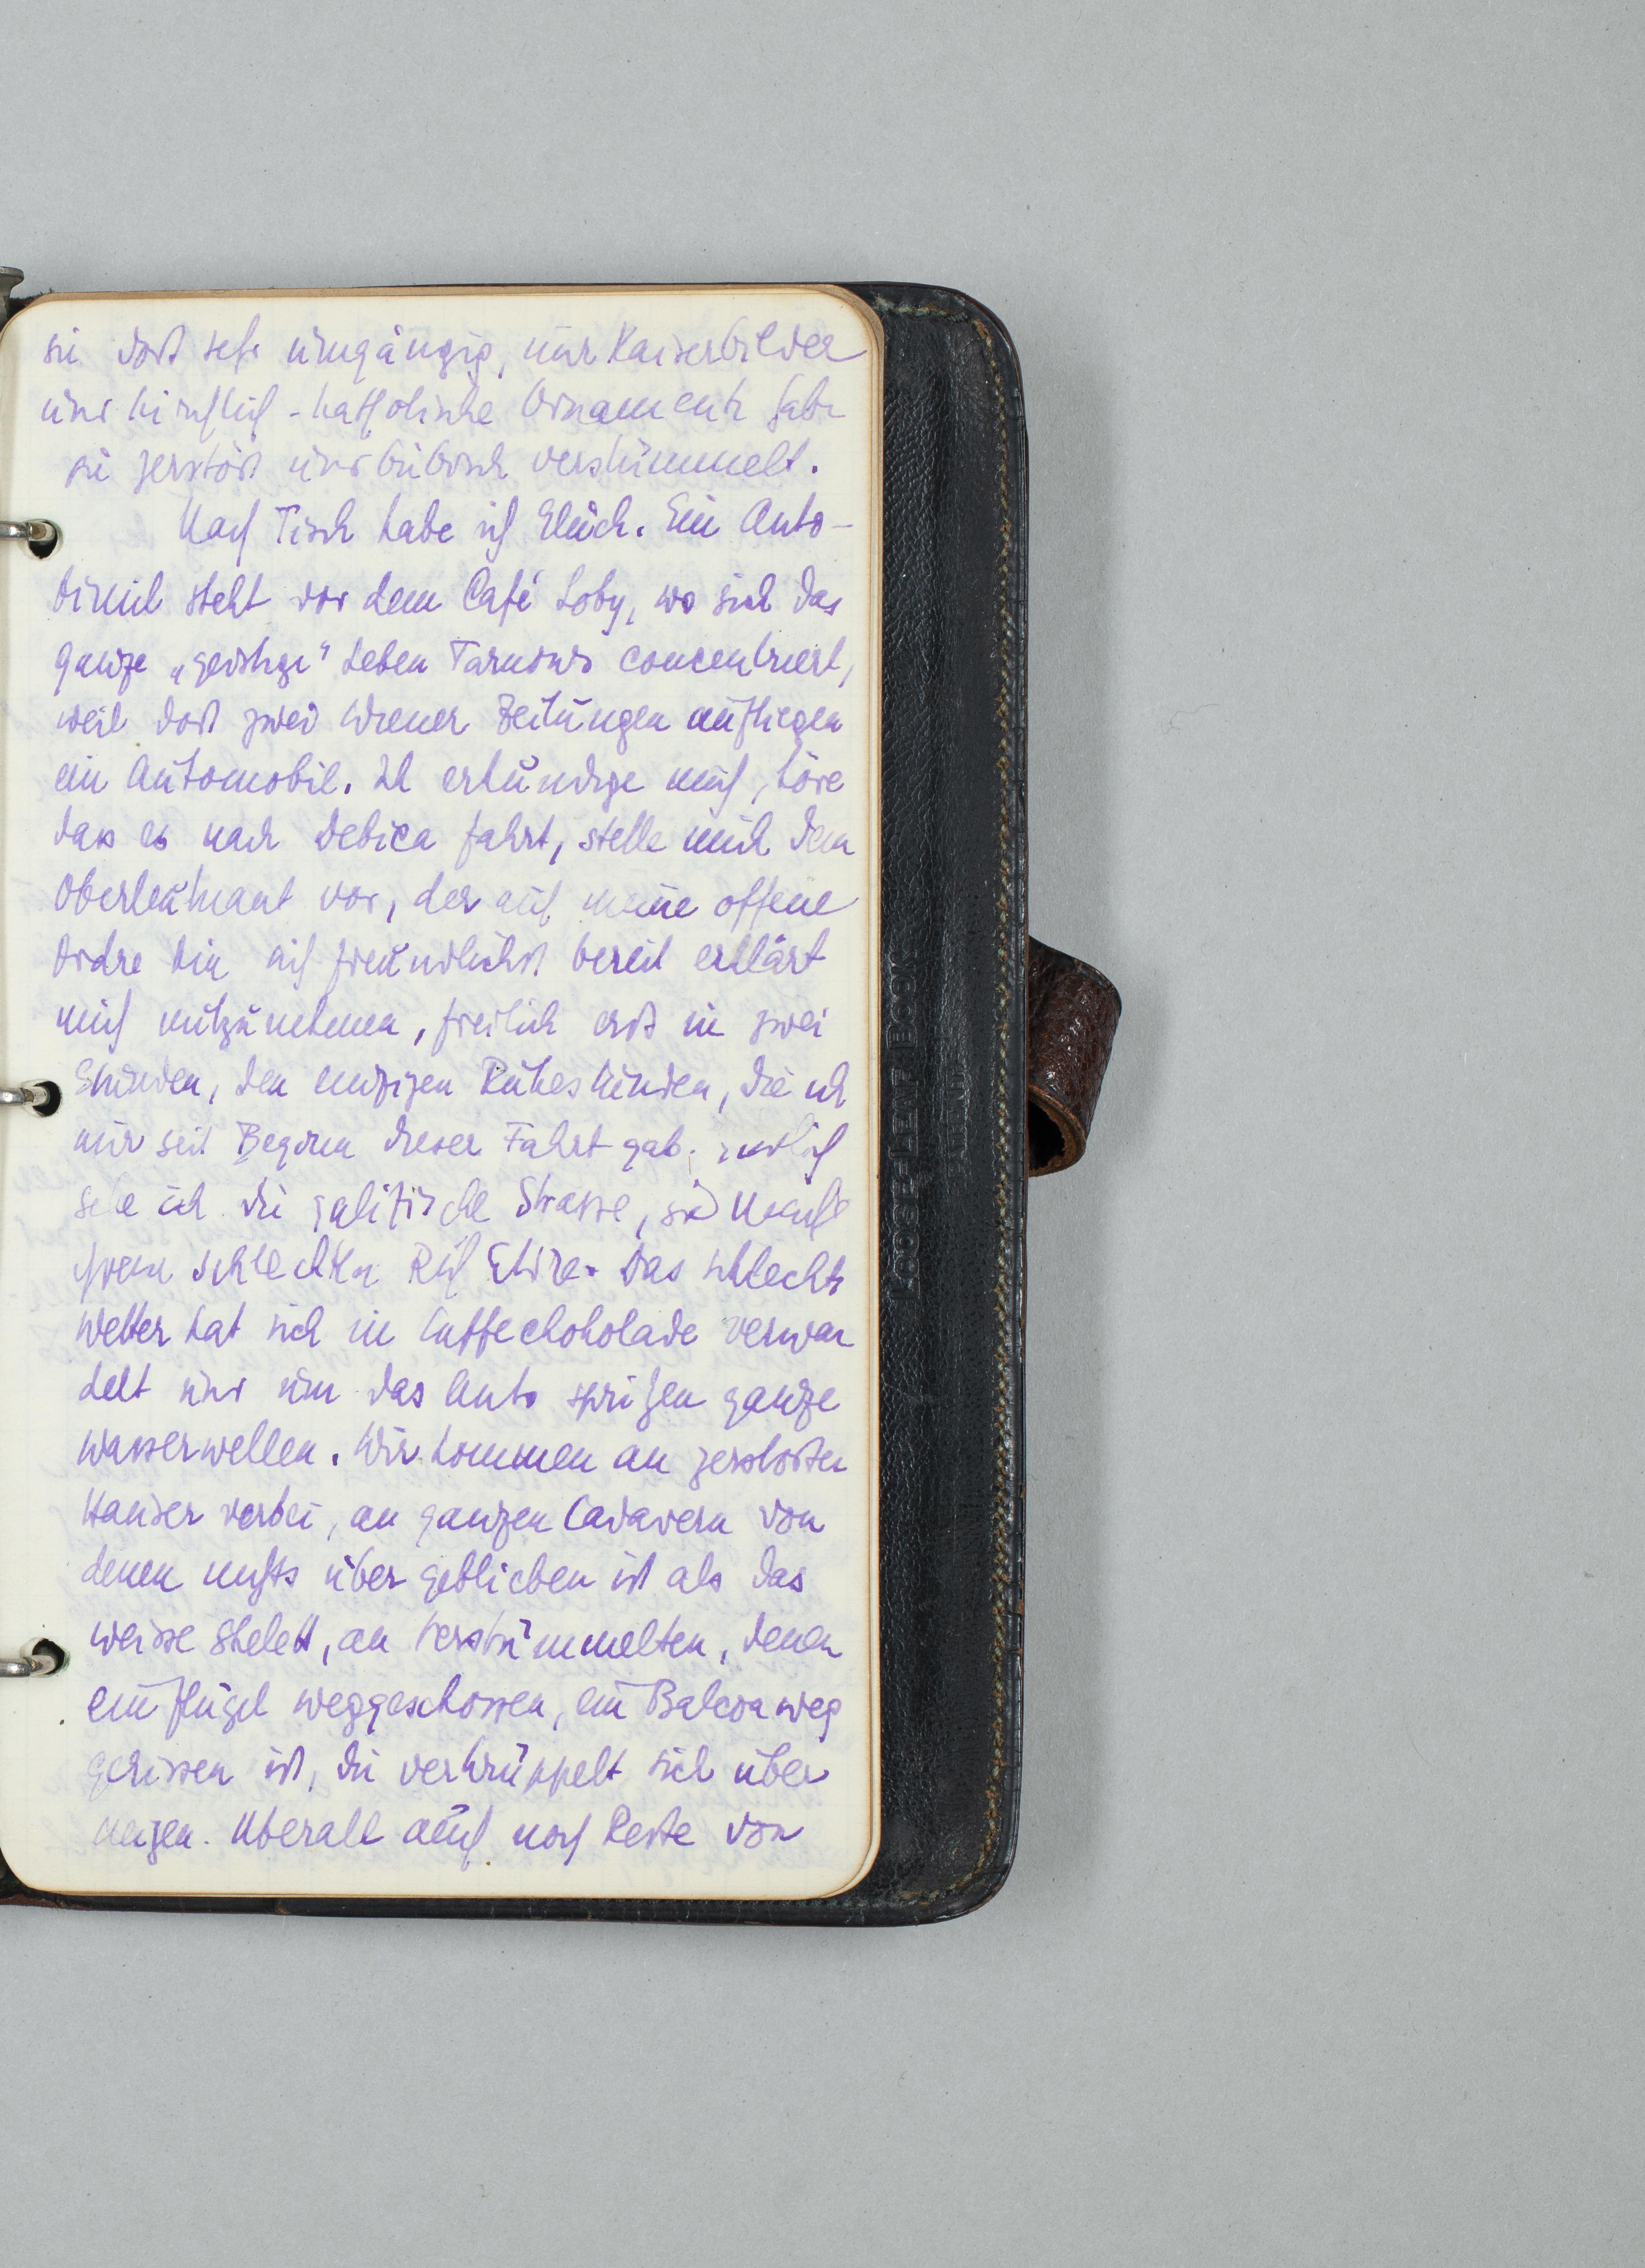 sie dort sehr umgängig, nur Kaiserbilder
und kirchlich-katholische Ornamente habe
sie zerstört und bübisch verstümmelt.
Nach Tisch habe ich Glück. Ein Auto-
bimil steht vor dem Café Loby, wo sich das
ganze „geistige" Leben Tarnows concentriert,
weil dort zwei Wiener Zeitungen aufliegen
ein Automobil. Ich erkundige mich, höre
dass es nach Debica fahrt, stelle mich dem
Oberleutnant vor, der auf meine offene
Ordre hin sich freundlichst bereit erklärt
mich mitzunehmen, freilich erst in zwei
Stunden, den einzigen Ruhestunden, die ich
mir seit Beginn dieser Fahrt gab. Endlich
sehe ich die galizische Strasse, sie macht
ihrem schlechten Ruf Ehre. Das schlechte
Wetter hat sich in Caffechokolade verwan
delt und um das Auto spritzen ganze
Wasserwellen. Wir kommen an zerstörten
Hauser vorbei, an ganzen Cadavern von
denen nichts über geblieben ist als das
weisse Skelett, an verstümmelten, denen
ein Flügel weggeschossen, ein Balcon weg
gerissen ist, die verkrüppelt sich über
neigen. Uberall auch noch Reste von
LOOSE-LEAF BOOK